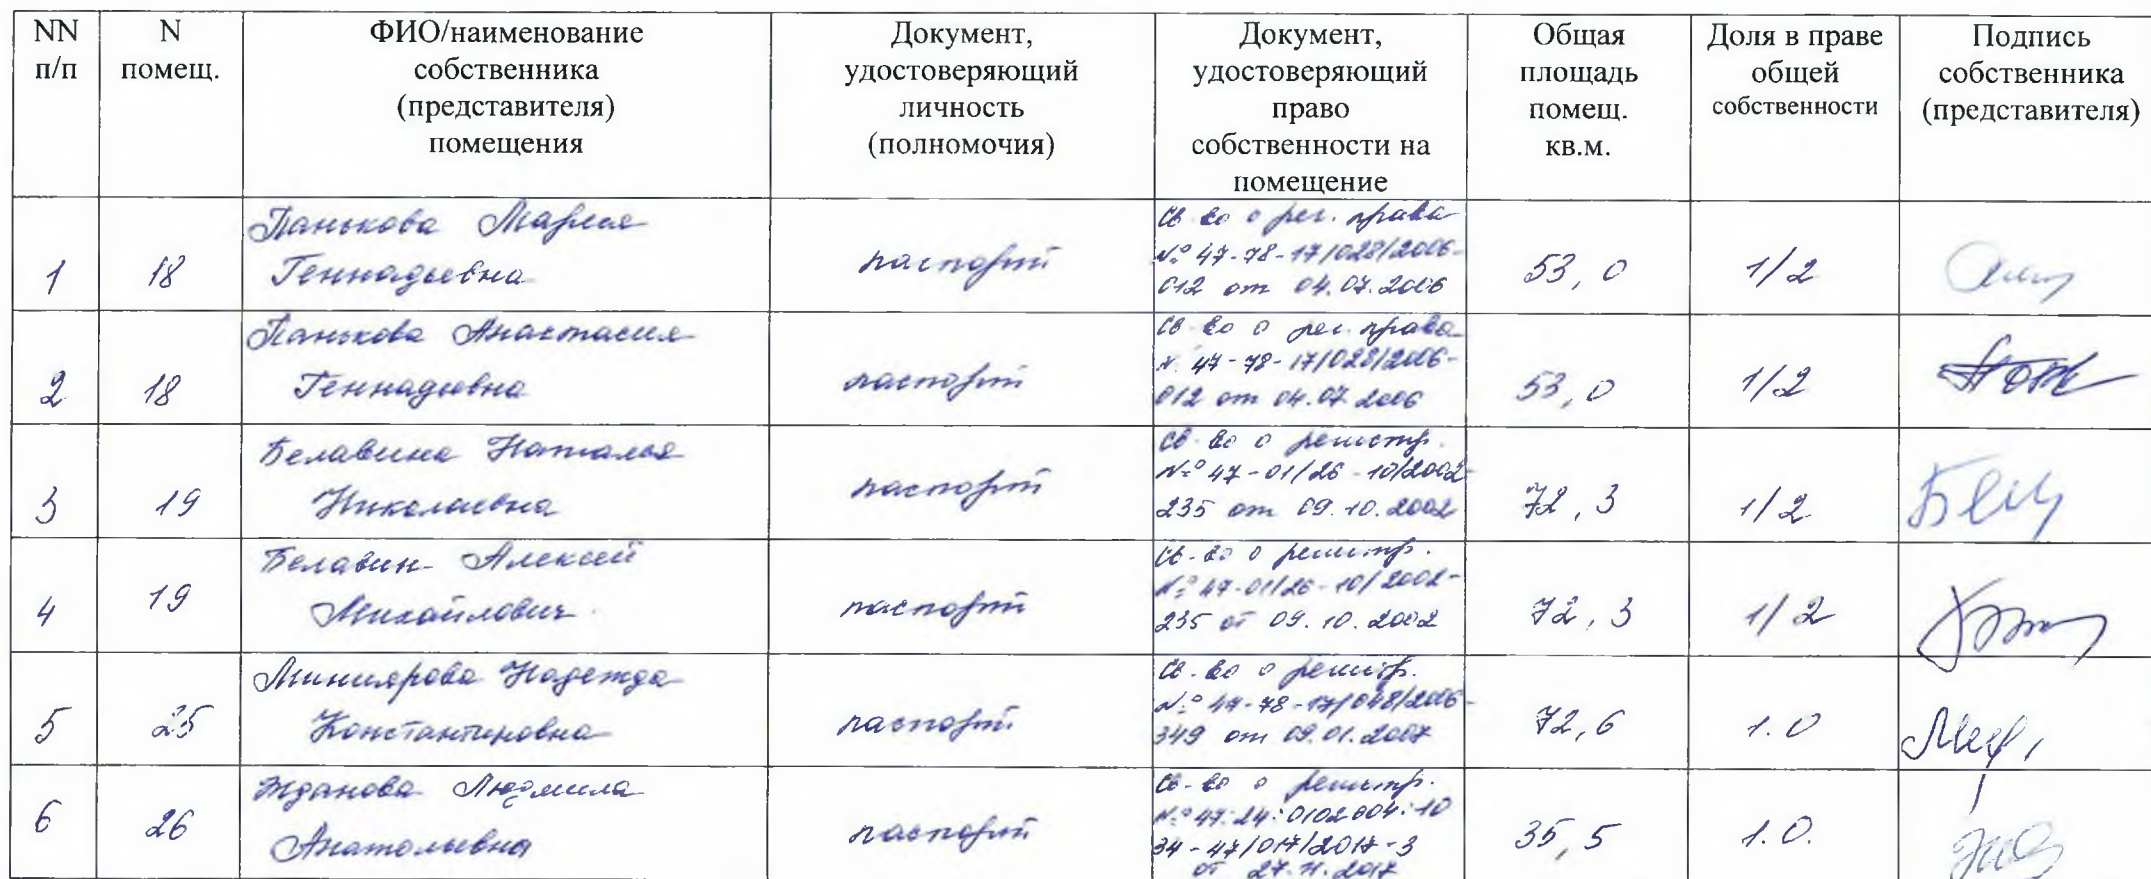 NN п/п
N помещ.
ФИО/наименование собственника (представителя) помещения
Документ, удостоверяющий личность (полномочия)
Документ, удостоверяющий право собственности на помещение
Общая площадь помещ. кв.м.
Доля в праве общей собственности
Подпись собственника (представителя)
1
18
Панькова Мария
Геннадьевна
паспорт
Св-во о рег. права
№ 47-78-17/028/2006-
012 от 04.07.2006
53,0
1/2
2
18
Панькова Анастасия
Геннадьевна
паспорт
Св-во о рег. права
№ 47-78-17/028/2006-
012 от 04.07.2006
53,0
1/2
3
19
Белавина Наталья
Николаевна
паспорт
Св-во о регистр.
№ 47-01/26-10/2002-
235 от 09.10.2002
72,3
1/2
4
19
Белавин Алексей
Михайлович
паспорт
Св-во о регистр.
№ 47-01/26-10/2002-
235 от 09.10.2002
72,3
1/2
5
25
Миниярова Надежда
Константиновна
паспорт
Св-во о регистр.
№ 47-78-17/048/2006-
349 от 09.01.2007
72,6
1.0
6
26
Жданова Людмила
Анатольевна
паспорт
Св-во о регистр.
№ 47:24:0102004:10
34-47/017/2017-3
от 27.11.2017
35,5
1.0.